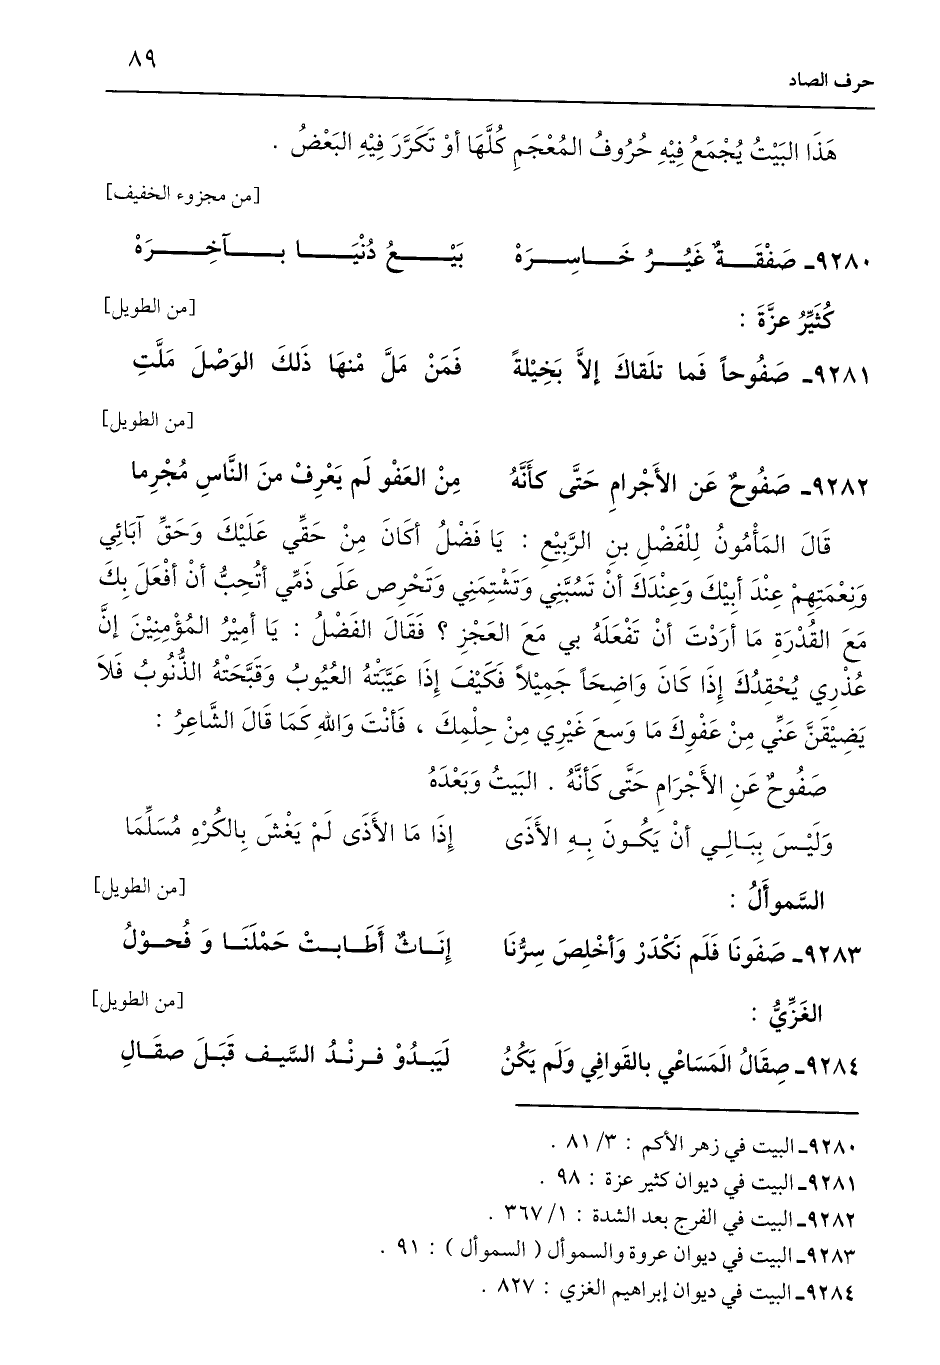 ٨٩
حرف الصاد
هَذَا البَيْتُ يُجْمَعُ فِيْهِ حُرُوفُ المُعْجَمِ كُلَّهَا أوْ تَكَرَّرَ فِيْهِ البَعْضُ .
[من مجزوء الخفيف]
٩٢٨٠ـ صَفْقَــةٌ غَيْــرُ خَــاسِــرَهْ بَيْــــعُ دُنْيَــــا بــــآخِــــرَهْ
كُثَيِّرُ عزَّةَ : [من الطويل]
٩٢٨١ـ صَفُوحاً فَما تلَقاكَ إلاَّ بَخِيْلةً فَمَنْ مَلَّ مْنهَا ذَلكَ الوَصْلَ مَلَّتِ
[من الطويل]
٩٢٨٢ـ صَفُوحٌ عَن الأَجْرامِ حَتَّى كأَنَّهُ مِنْ العَفْو لَم يَعْرِفْ منَ النَّاسِ مُجْرِما
قَالَ المَأْمُونُ لِلْفَضْلِ بنِ الرَّبِيْعِ : يَا فَضْلُ أكَانَ مِنْ حَقِّي عَلَيْكَ وَحَقِّ آبَائِي
وَنِعْمَتِهِمْ عِنْدَ أبِيْكَ وَعِنْدَكَ أنْ تَسُبَّنِي وَتَشْتِمَنِي وَتَحْرِص عَلَى ذَمِّي أتُحِبُّ أنْ أفْعَلَ بِكَ
مَعَ القُدْرَةِ مَا أرَدْتَ أنْ تَفْعَلَهُ بي مَعَ العَجْزِ ؟ فَقَالَ الفَضْلُ : يَا أمِيْرُ المُؤْمِنِيْنَ إنَّ
عُذْرِي يُحْقِدُكَ إذَا كَانَ وَاضِحَاً جَمِيْلاً فَكَيْفَ إذَا عَيَّبَتْهُ العُيُوبُ وَقَبَّحَتْهُ الذُّنُوبُ فَلاَ
يَضِيْقَنَّ عَنِّي مِنْ عَفْوِكَ مَا وَسعَ غَيْرِي مِنْ حِلْمِكَ ، فَأنْتَ وَاللهِ كَمَا قَالَ الشَّاعِرُ :
صَفُوحٌ عَنِ الأَجْرَامِ حَتَّى كَأنَّهُ . البَيتُ وَبَعْدَهُ
وَلَيْـسَ يبَـالِـي أنْ يَكُـونَ بِـهِ الأَذَى إذَا مَا الأَذَى لَمْ يَغْشَ بِالكُرْهِ مُسَلِّمَا
السَّموأَلُ : [من الطويل]
٩٢٨٣ـ صَفَونَا فَلَم نَكْدَرْ وَأخْلِصَ سِرُّنَا إنَــاثٌ أَطَــابــتْ حَمْلَنَــا وَ فُحــوْلُ
الغَزِّيُّ : [من الطويل]
٩٢٨٤ـ صِقَالُ المَسَاعْي بالقَوافِي وَلَم يَكُنُ لَيَبْـدُوْ فـرنْـدُ السَّيـف قَبَـلَ صقَـالِ
٩٢٨٠ـ البيت في زهر الأكم : ٣/ ٨١ .
٩٢٨١ـ البيت في ديوان كثير عزة : ٩٨ .
٩٢٨٢ـ البيت في الفرج بعد الشدة : ١/ ٣٦٧ .
٩٢٨٣ـ البيت في ديوان عروة والسموأل ( السموأل ) : ٩١ .
٩٢٨٤ـ البيت في ديوان إبراهيم الغزي : ٨٢٧ .